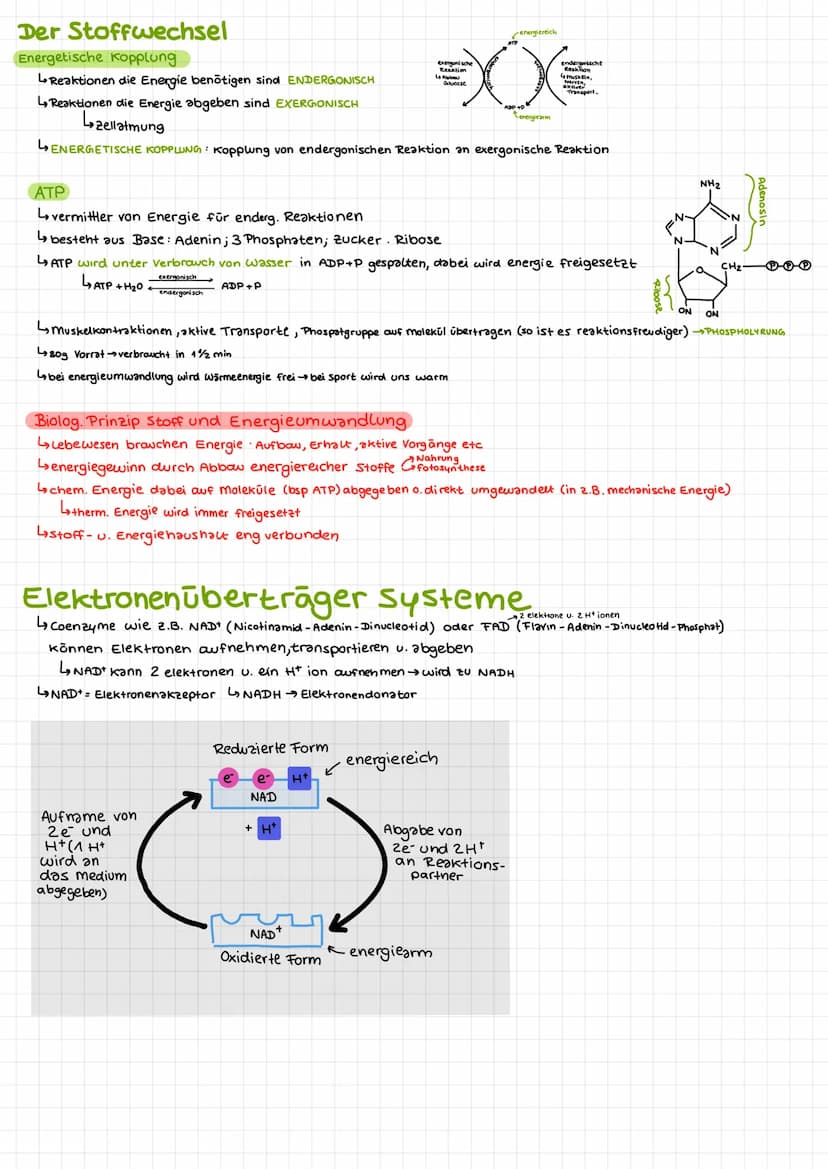 Der Stoffwechsel
Energetische Kopplung
↳Reaktionen die Energie benötigen sind ENDERGONISCH
↳Reaktionen die Energie abgeben sind EXERGONISCH
↳Zellatmung
↳ENERGETISCHE KOPPLUNG: Kopplung von endergonischen Reaktion an exergonische Reaktion
energiereich
ATP
exergonische
Reaktion
Glucose
endergonische
Reaktion
↳Muskeln,
aktiver
Transport.
ADP+P
energiearm
ATP
↳vermittler von Energie für enderg. Reaktionen
↳besteht aus Base: Adenin; 3 Phosphaten; Zucker. Ribose
↳ATP wird unter Verbrauch von Wasser in ADP+P gespalten, dabei wird energie freigesetzt
↳ATP +H₂O exergonisch endergonisch ADP+P
↳Muskelkontraktionen, aktive Transporte, Phospatgruppe auf molekül übertragen (so ist es reaktionsfreudiger) →PHOSPHOLYRUNG
↳80g Vorrat→verbraucht in 1½ min
↳bei energieumwandlung wird Wärmeenergie frei→bei Sport wird uns warm
NH₂
N
N
N
N
Adenosin
CH₂
P P P
O
Ribose
ON
ON
Biolog. Prinzip Stoff und Energieumwandlung
↳Lebewesen brauchen Energie · Aufbau, Erhalt, aktive Vorgänge etc
↳energiegewinn durch Abbau energiereicher Stoffe →Nahrung
→Fotosynthese
↳chem. Energie dabei auf Moleküle (bsp ATP) abgegeben o. direkt umgewandelt (in z.B. mechanische Energie)
↳therm. Energie wird immer freigesetzt
↳Stoff- u. Energiehaushalt eng verbunden
Elektronenüberträger Systeme
→2 elektrone u. 2 H⁺ ionen
↳Coenzyme wie z.B. NAD⁺ (Nicotinamid-Adenin-Dinucleotid) oder FAD (Flavin-Adenin-Dinucleotid-Phosphat)
können Elektronen aufnehmen, transportieren u. abgeben
↳NAD⁺ kann 2 elektronen u. ein H⁺ ion aufnehmen→wird zu NADH
↳NAD⁺= Elektronenakzeptor ↳NADH → Elektronendonator
Reduzierte Form
energiereich
e⁻ e⁻ H⁺
NAD
+ H⁺
Aufname von
2e⁻ und
H⁺(1 H⁺
wird an
das medium
abgegeben)
Abgabe von
2e⁻ und 2H⁺
an Reaktions-
partner
NAD⁺
Oxidierte Form
energiearm